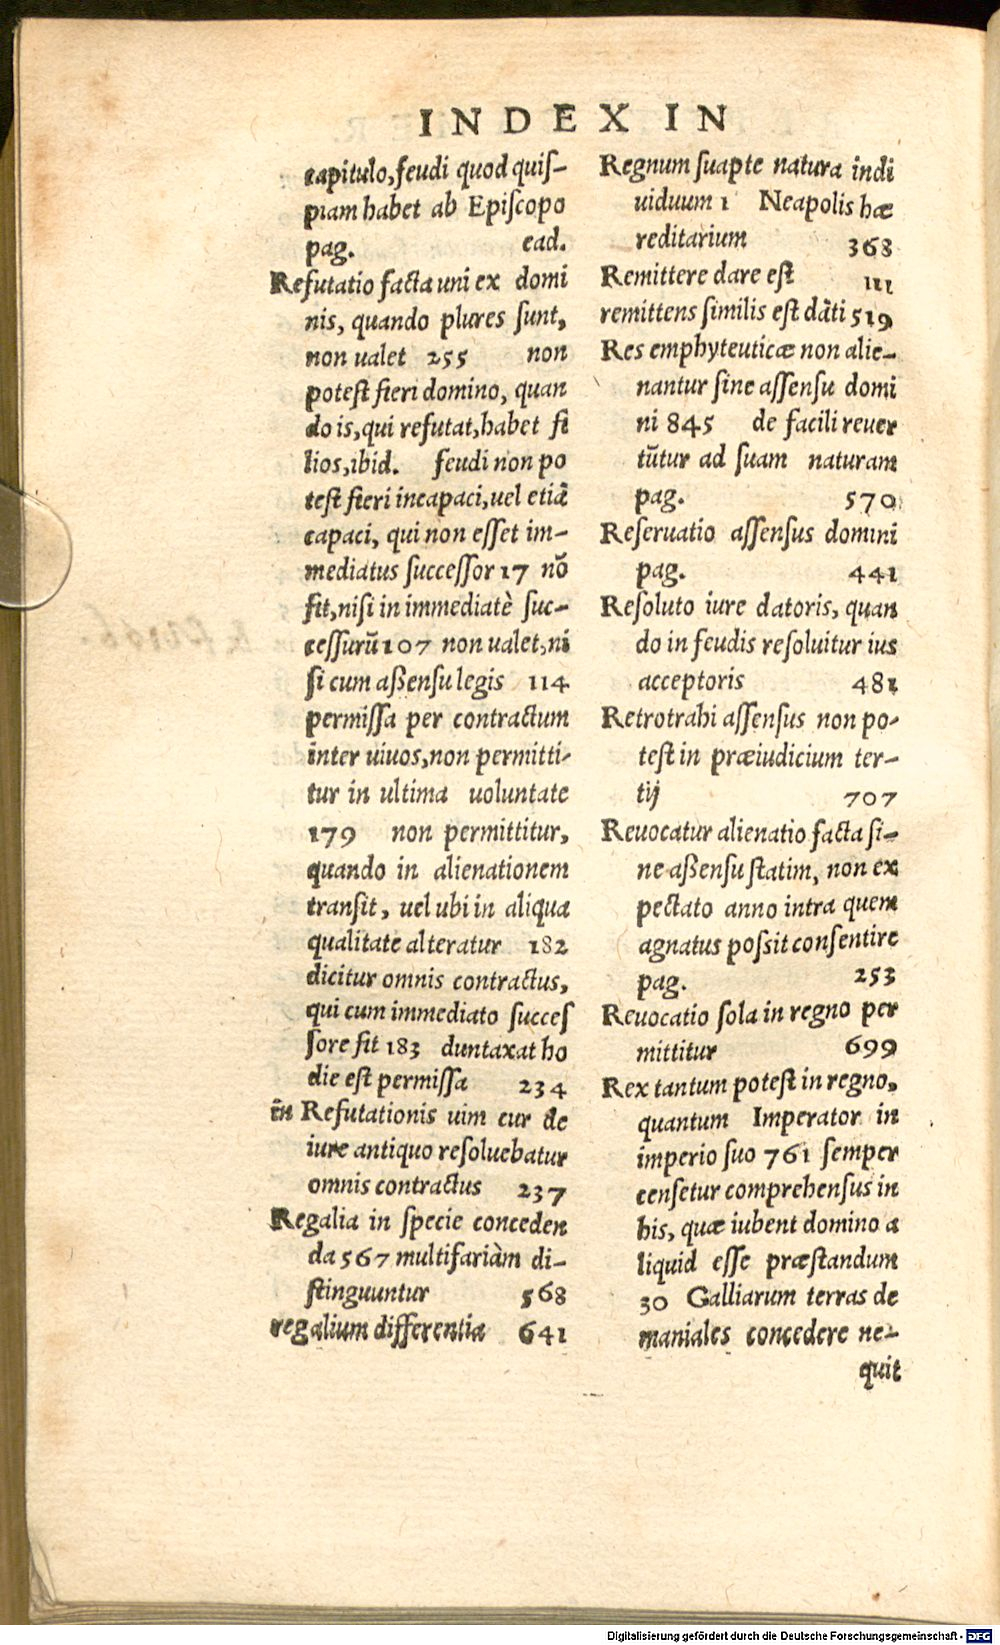 INDEX IN
capitulo, feudi quod quiſ-
piam habet ab Epiſcopo
pag. ead.
Refutatio facta uni ex domi
nis, quando plures ſunt,
non ualet 255 non
poteſt fieri domino, quan
do is, qui refutat, habet fi
lios, ibid. feudi non po
teſt fieri incapaci, uel etiã
capaci, qui non eſſet im-
mediatus ſucceſſor 17 nõ
fit, niſi in immediatè ſuc-
ceſſurũ 107 non ualet, ni
ſi cum aßenſu legis 114
permiſſa per contractum
inter uiuos, non permitti-
tur in ultima uoluntate
179 non permittitur,
quando in alienationem
tranſit, uel ubi in aliqua
qualitate alteratur 182
dicitur omnis contractus,
qui cum immediato ſucceſ
ſore fit 183 duntaxat ho
die eſt permiſſa 234
in Refutationis uim cur de
iure antiquo reſoluebatur
omnis contractus 237
Regalia in ſpecie conceden
da 567 multifariàm di-
ſtinguuntur 568
regalium differentia 641
Regnum ſuapte natura indi
uiduum 1 Neapolis hæ
reditarium 368
Remittere dare eſt 111
remittens ſimilis eſt dãti 519
Res emphyteuticæ non alie-
nantur ſine aſſenſu domi
ni 845 de facili reuer
tũtur ad ſuam naturam
pag. 570
Reſeruatio aſſenſus domini
pag. 441
Reſoluto iure datoris, quan
do in feudis reſoluitur ius
acceptoris 481
Retrotrahi aſſenſus non po-
teſt in præiudicium ter-
tij 707
Reuocatur alienatio facta ſi-
ne aßenſu ſtatim, non ex
pectato anno intra quem
agnatus poſsit conſentire
pag. 253
Reuocatio ſola in regno per
mittitur 699
Rex tantum poteſt in regno,
quantum Imperator in
imperio ſuo 761 ſemper
cenſetur comprehenſus in
his, quæ iubent domino a
liquid eſſe præſtandum
30 Galliarum terras de
maniales concedere ne-
quit
Digitalisierung gefördert durch die Deutsche Forschungsgemeinschaft - DFG